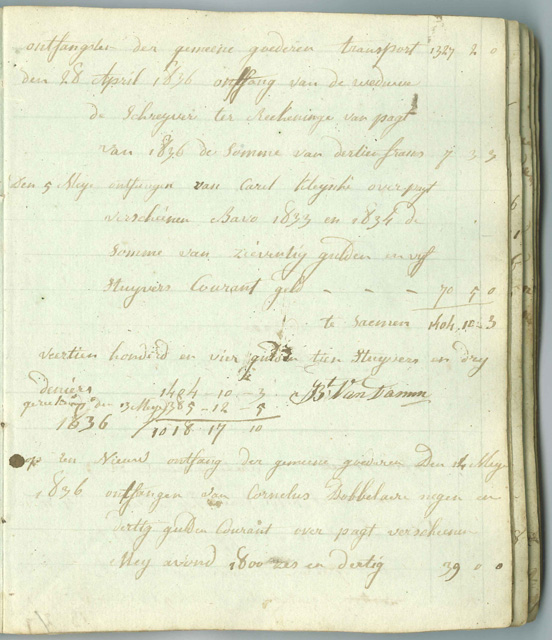 ontfangsten der gemeene goederen transport 1327 2 0
den 28 April 1836 ontfang van de weduwe
de Schryver ter Rekeninge van pagt
van 1836 de Somme van dertien frans 7 3 3
Den 5 Meye ontfangen van Carel over pagt
verschenen Bavo 1833 en 1834 de
Somme van zeventig gulden en vyf
Stuyvers Courant geld - - - 70 5 0
te saemen 1404 10 - 3
veertien honderd en vier gulden tien Stuyvers en dry
deniers 1404 10 - 3 Bt Van Damme
den 13 Meye 385 - 12 - 5
1836 1018 - 17 10
op een Nieuw ontfang der gemeene goederen Den 14 Meye
1836 ontfangen van Cornelus Dobbelaere negen en
dertig gulden Courant over pagt verschenen
Mey avond 1800 zes en dertig 39 0 0